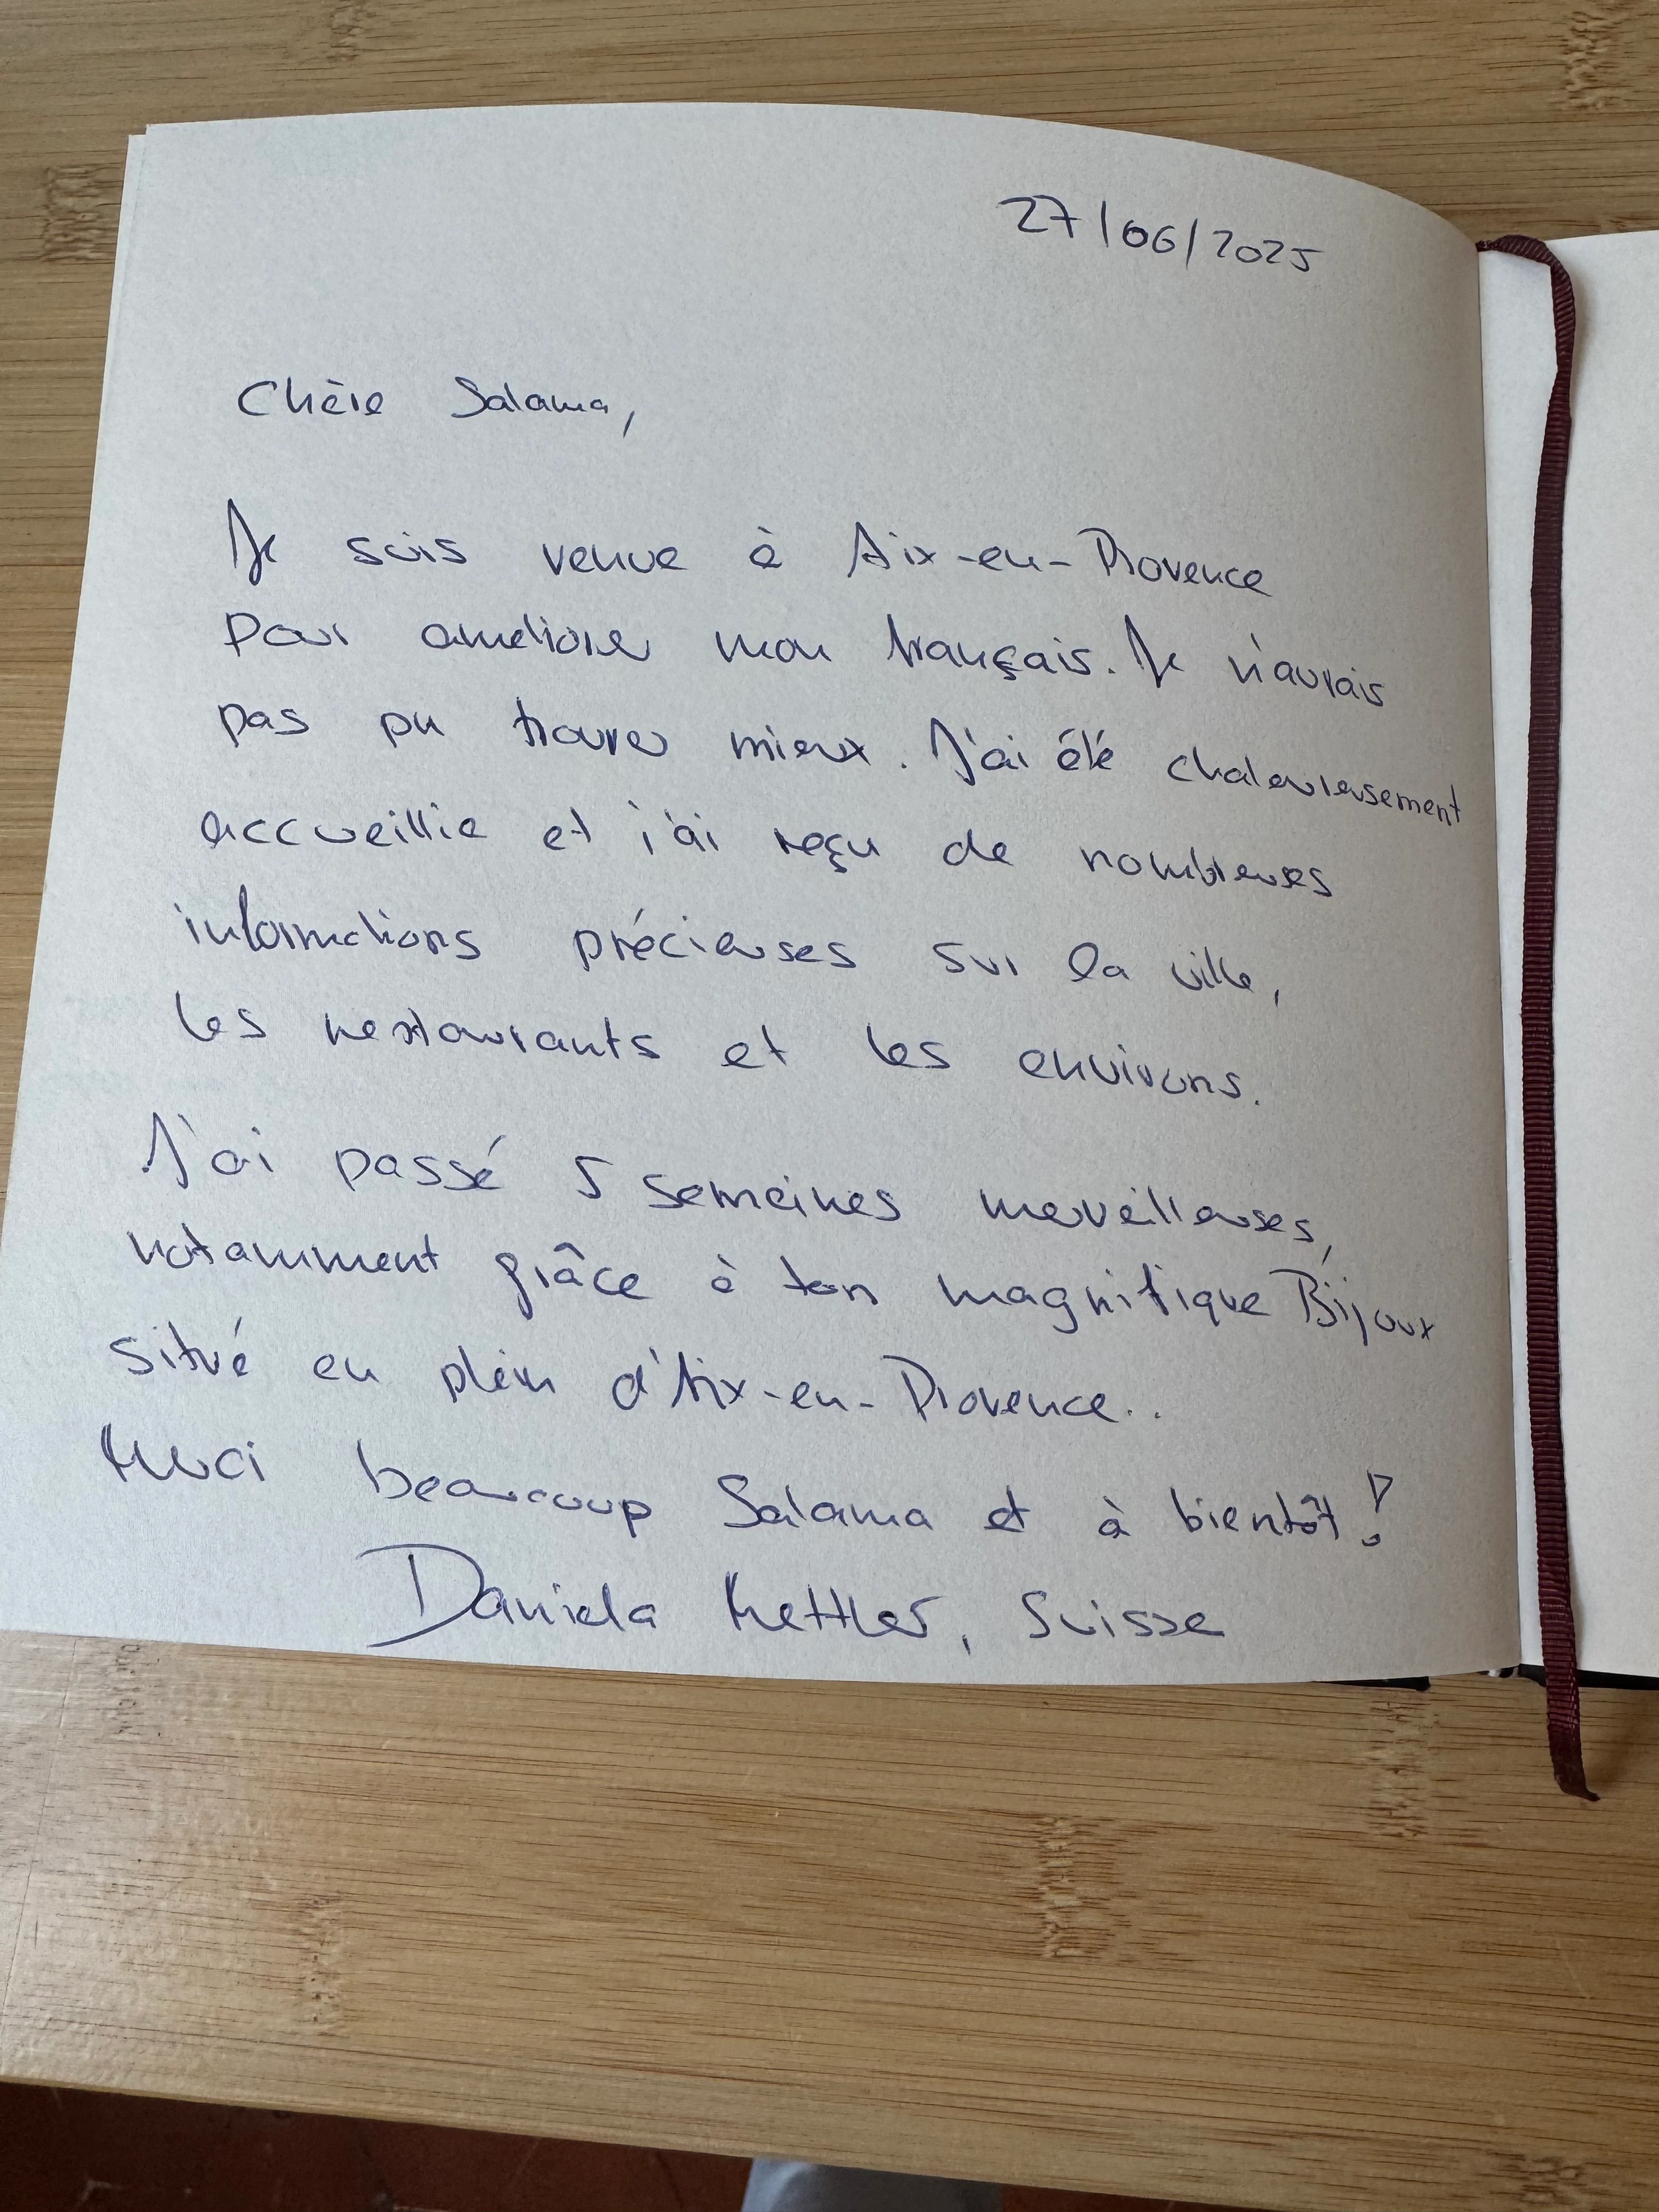 27/06/2025
Chère Salama,
Je suis venue à Aix-en-Provence
pour améliorer mon français. Je n'aurais
pas pu trouver mieux. J'ai été chaleureusement
accueillie et j'ai reçu de nombreuses
informations précieuses sur la ville,
les restaurants et les environs.
J'ai passé 5 semaines merveilleuses,
notamment grâce à ton magnifique Bijoux
situé en plein d'Aix-en-Provence..
Merci beaucoup Salama et à bientôt!
Daniela Kettler, Suisse